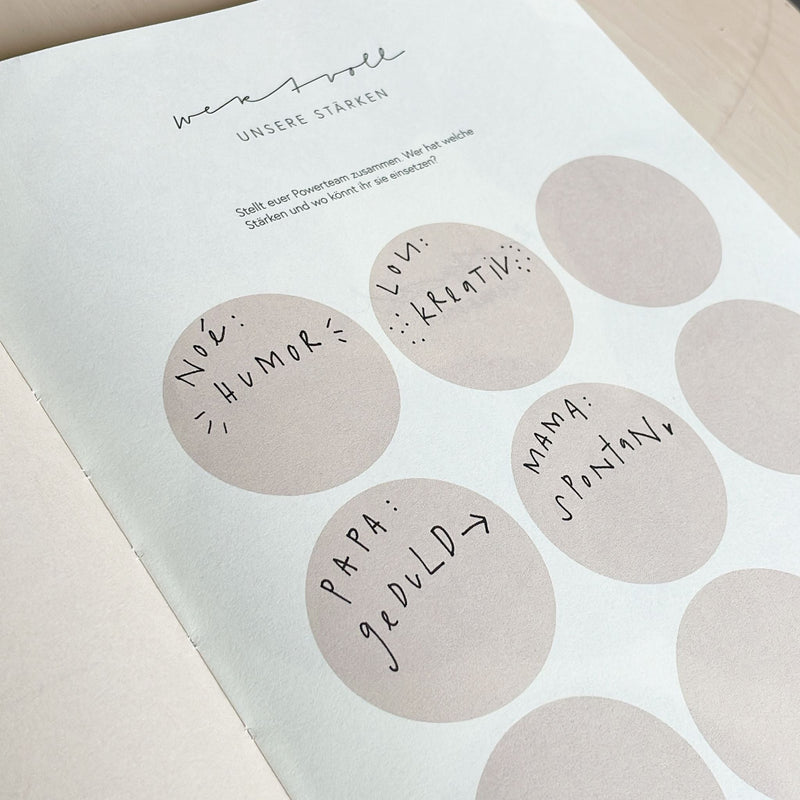 wertvoll
UNSERE STÄRKEN
Stellt euer Powerteam zusammen. Wer hat welche
Stärken und wo könnt ihr sie einsetzen?
NOÉ:
HUMOR
LOU:
KREATIV
PAPA:
GEDULD →
MAMA:
SPONTAN